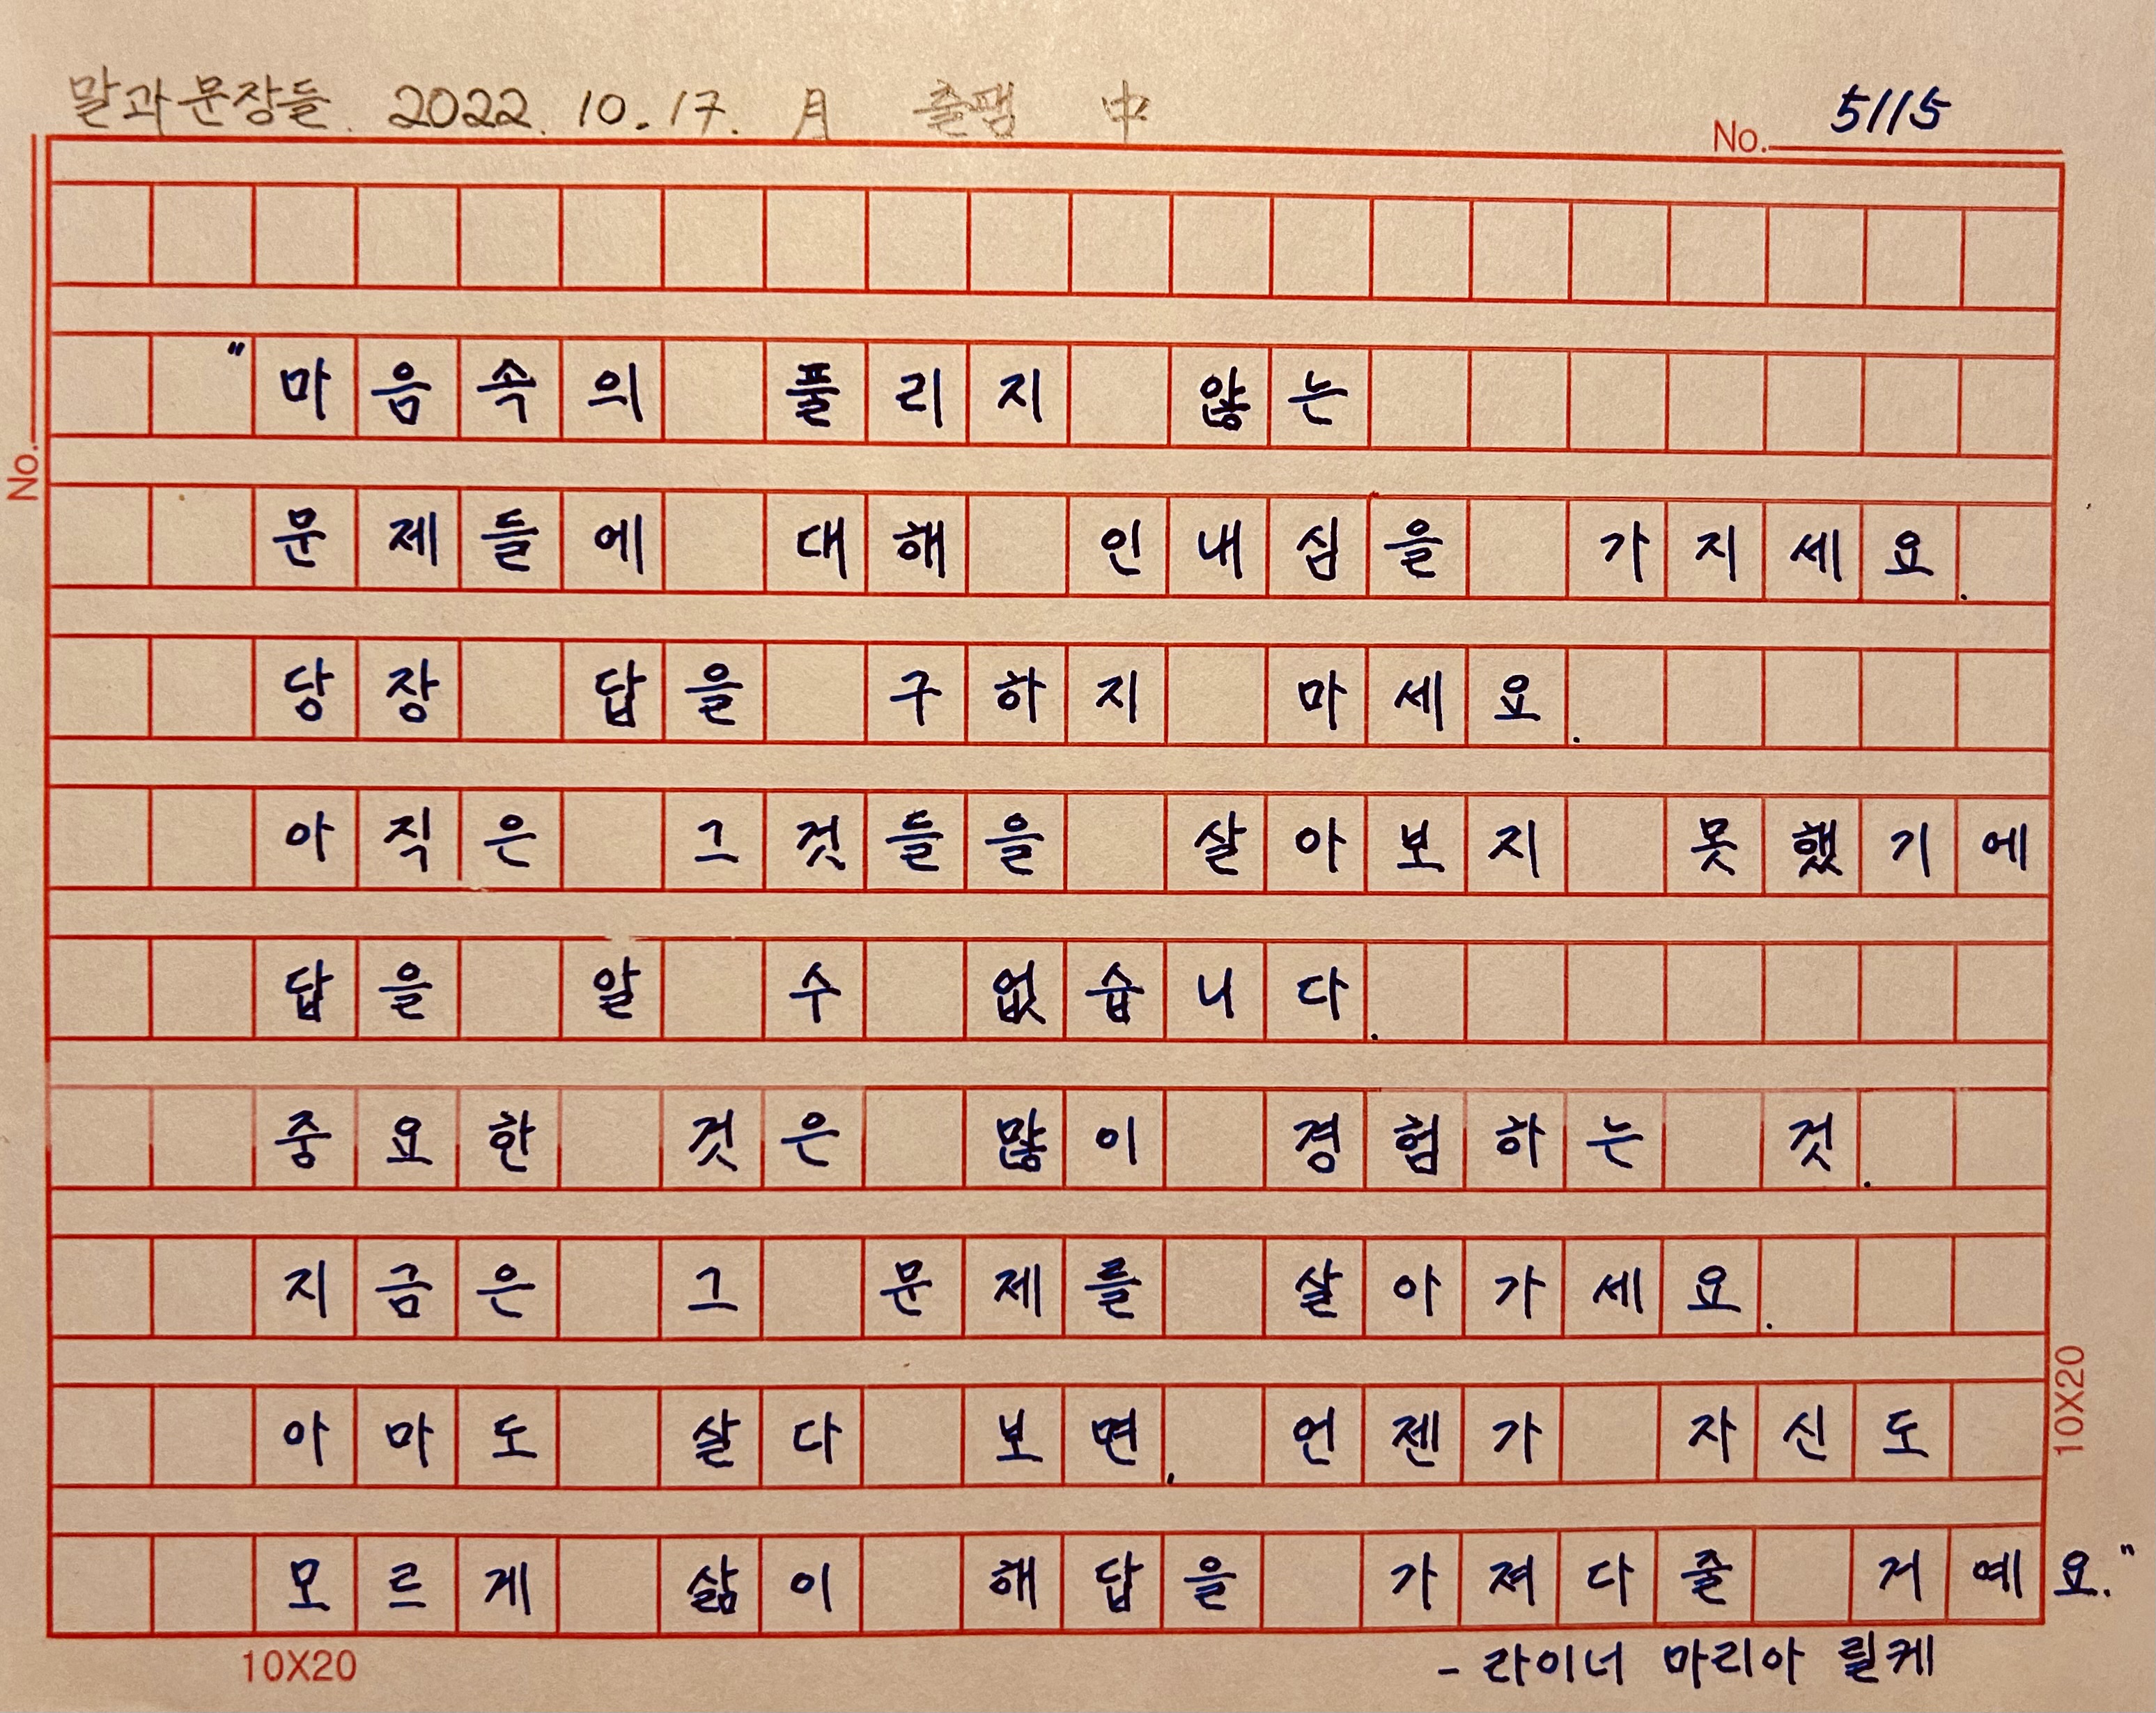 말과 문장들. 2022. 10. 17. 月 출팸 中
No. 5115
No.
"마음속의 풀리지 않는
문제들에 대해 인내심을 가지세요.
당장 답을 구하지 마세요.
아직은 그것들을 살아보지 못했기에
답을 알 수 없습니다.
중요한 것은 많이 경험하는 것.
지금은 그 문제를 살아가세요.
아마도 살다 보면, 언젠가 자신도
모르게 삶이 해답을 가져다줄 거예요."
10X20
10X20
- 라이너 마리아 릴케